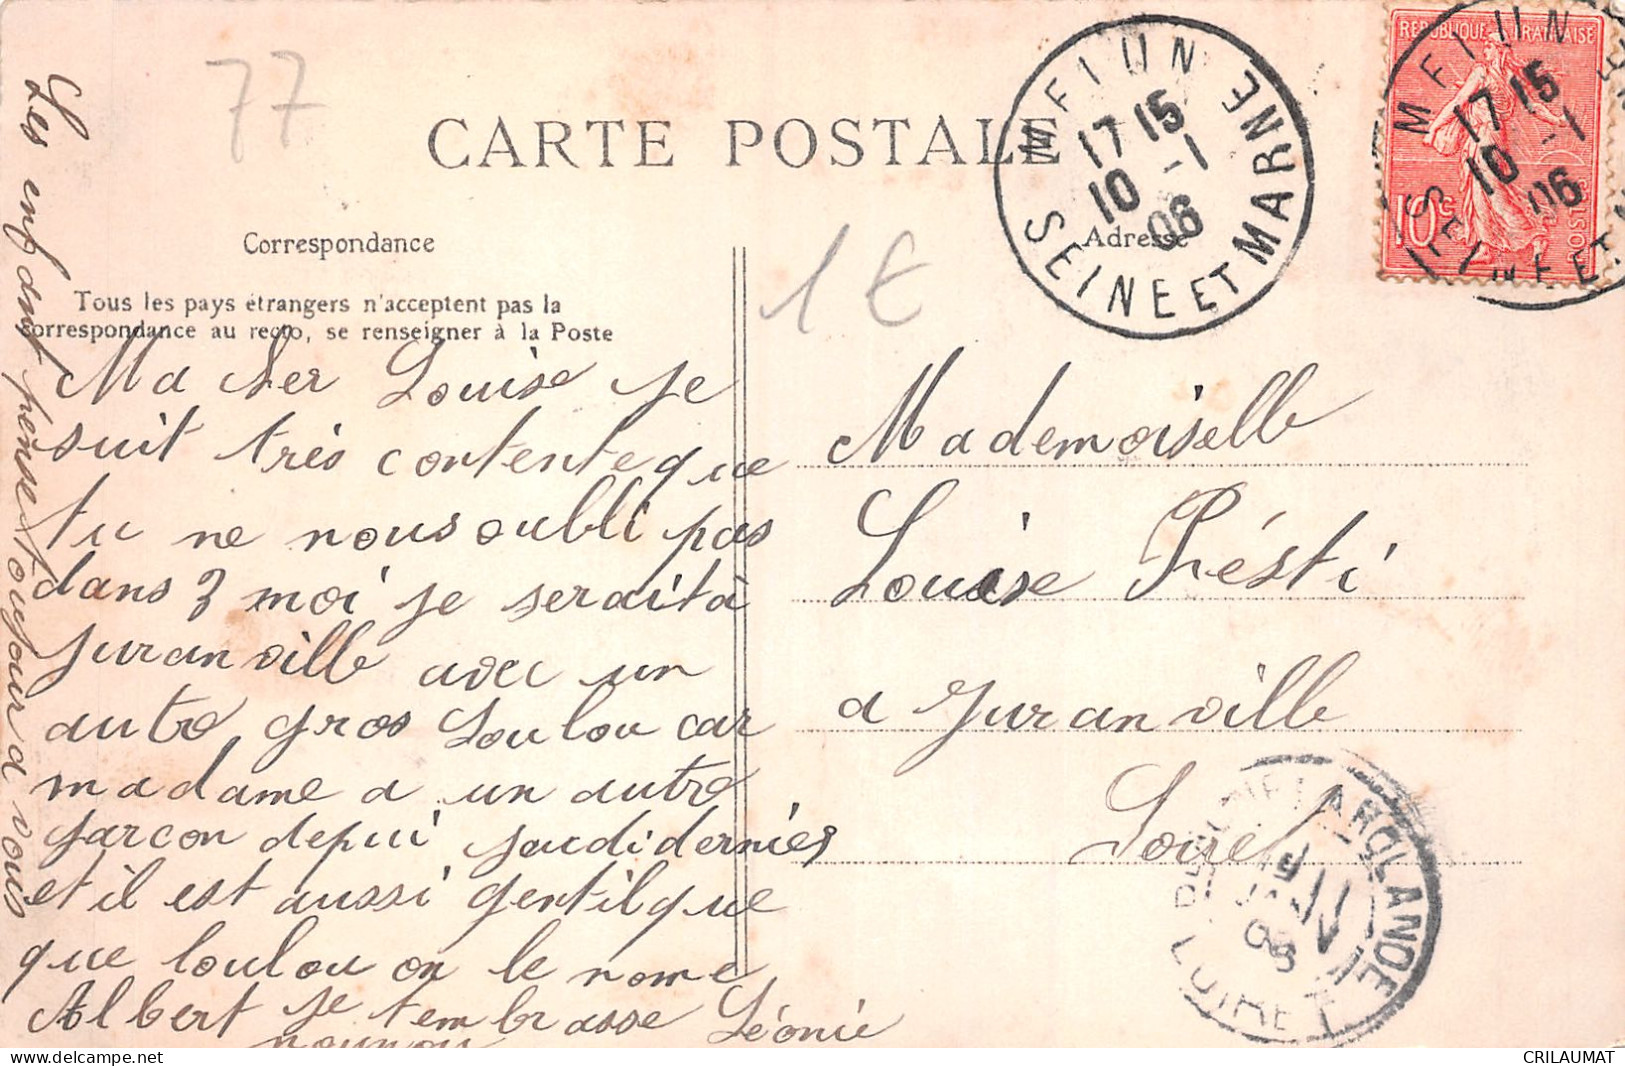 77
CARTE POSTALE
Correspondance
Adresse
1€
Tous les pays étrangers n'acceptent pas la
correspondance au recto, se renseigner à la Poste
Ma cher Louise je
suit très contente que
tu ne nous oubli pas
dans 3 moi je serait à
juranville avec un
autre gros Loulou car
madame a un autre
garcon depui jeudi dernies
et il est aussi gentil que
que loulou on le nome
Albert je tembrasse Léonie
nounou
Les enfant pense toujour a vous
Mademoiselle
Louise Présti
a juranville
Loiret
MELUN
17 15
10 -1
06
SEINE ET MARNE
REPUBLIQUE FRANÇAISE
10c
POSTES
MELUN
17 15
10 -1
06
SEINE ET
LARCLANDE
11
JANV
06
LOIRET
CRILAUMAT